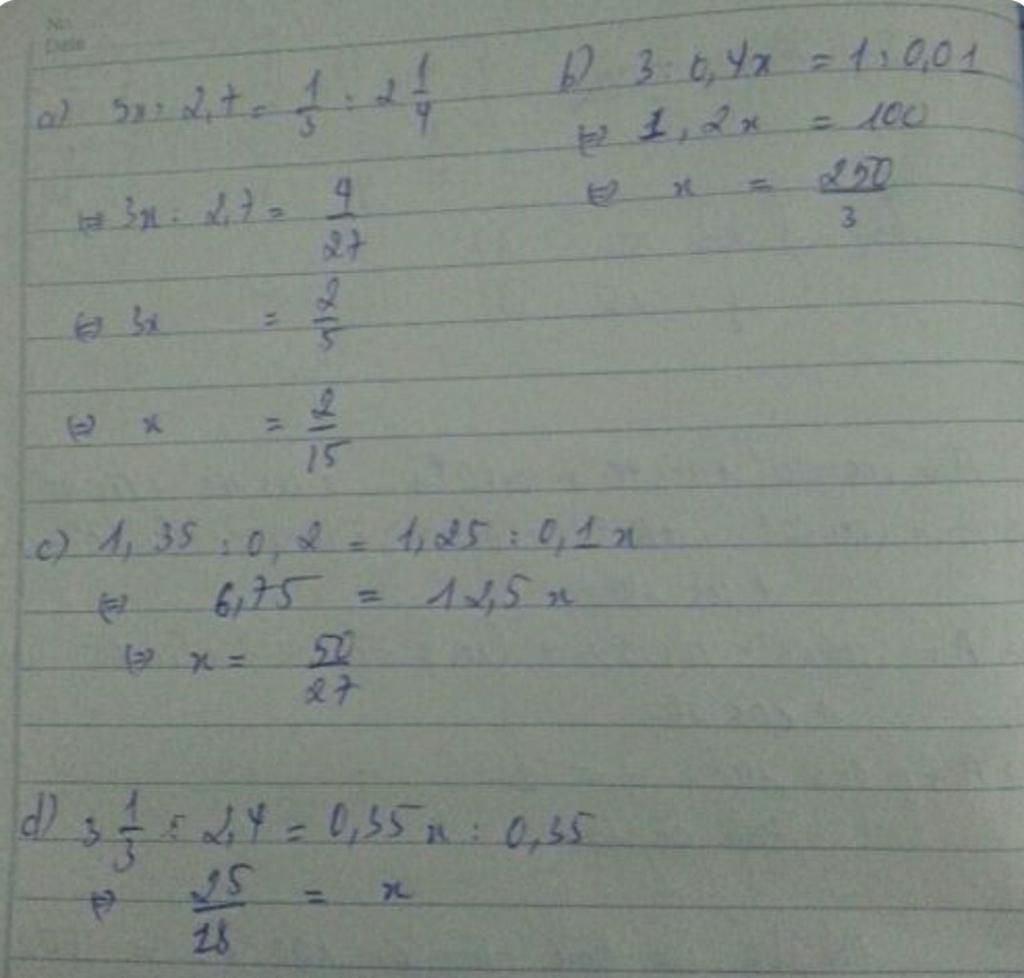 No.
Date
a) 3x : 2,7 = 1/3 : 2 1/4
⇔ 3x : 2,7 = 4/27
⇔ 3x = 2/5
⇔ x = 2/15
b) 3 : 0,4x = 1 : 0,01
⇔ 1,2x = 100
⇔ x = 250/3
c) 1,35 : 0,2 = 1,25 : 0,1x
⇔ 6,75 = 12,5x
⇔ x = 50/27
d) 3 1/3 : 2,4 = 0,35x : 0,35
⇔ 25/18 = x